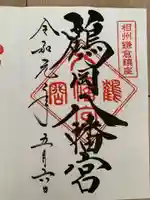 相州鎌倉鎮座
鶴岡八幡宮
令和元年五月六日